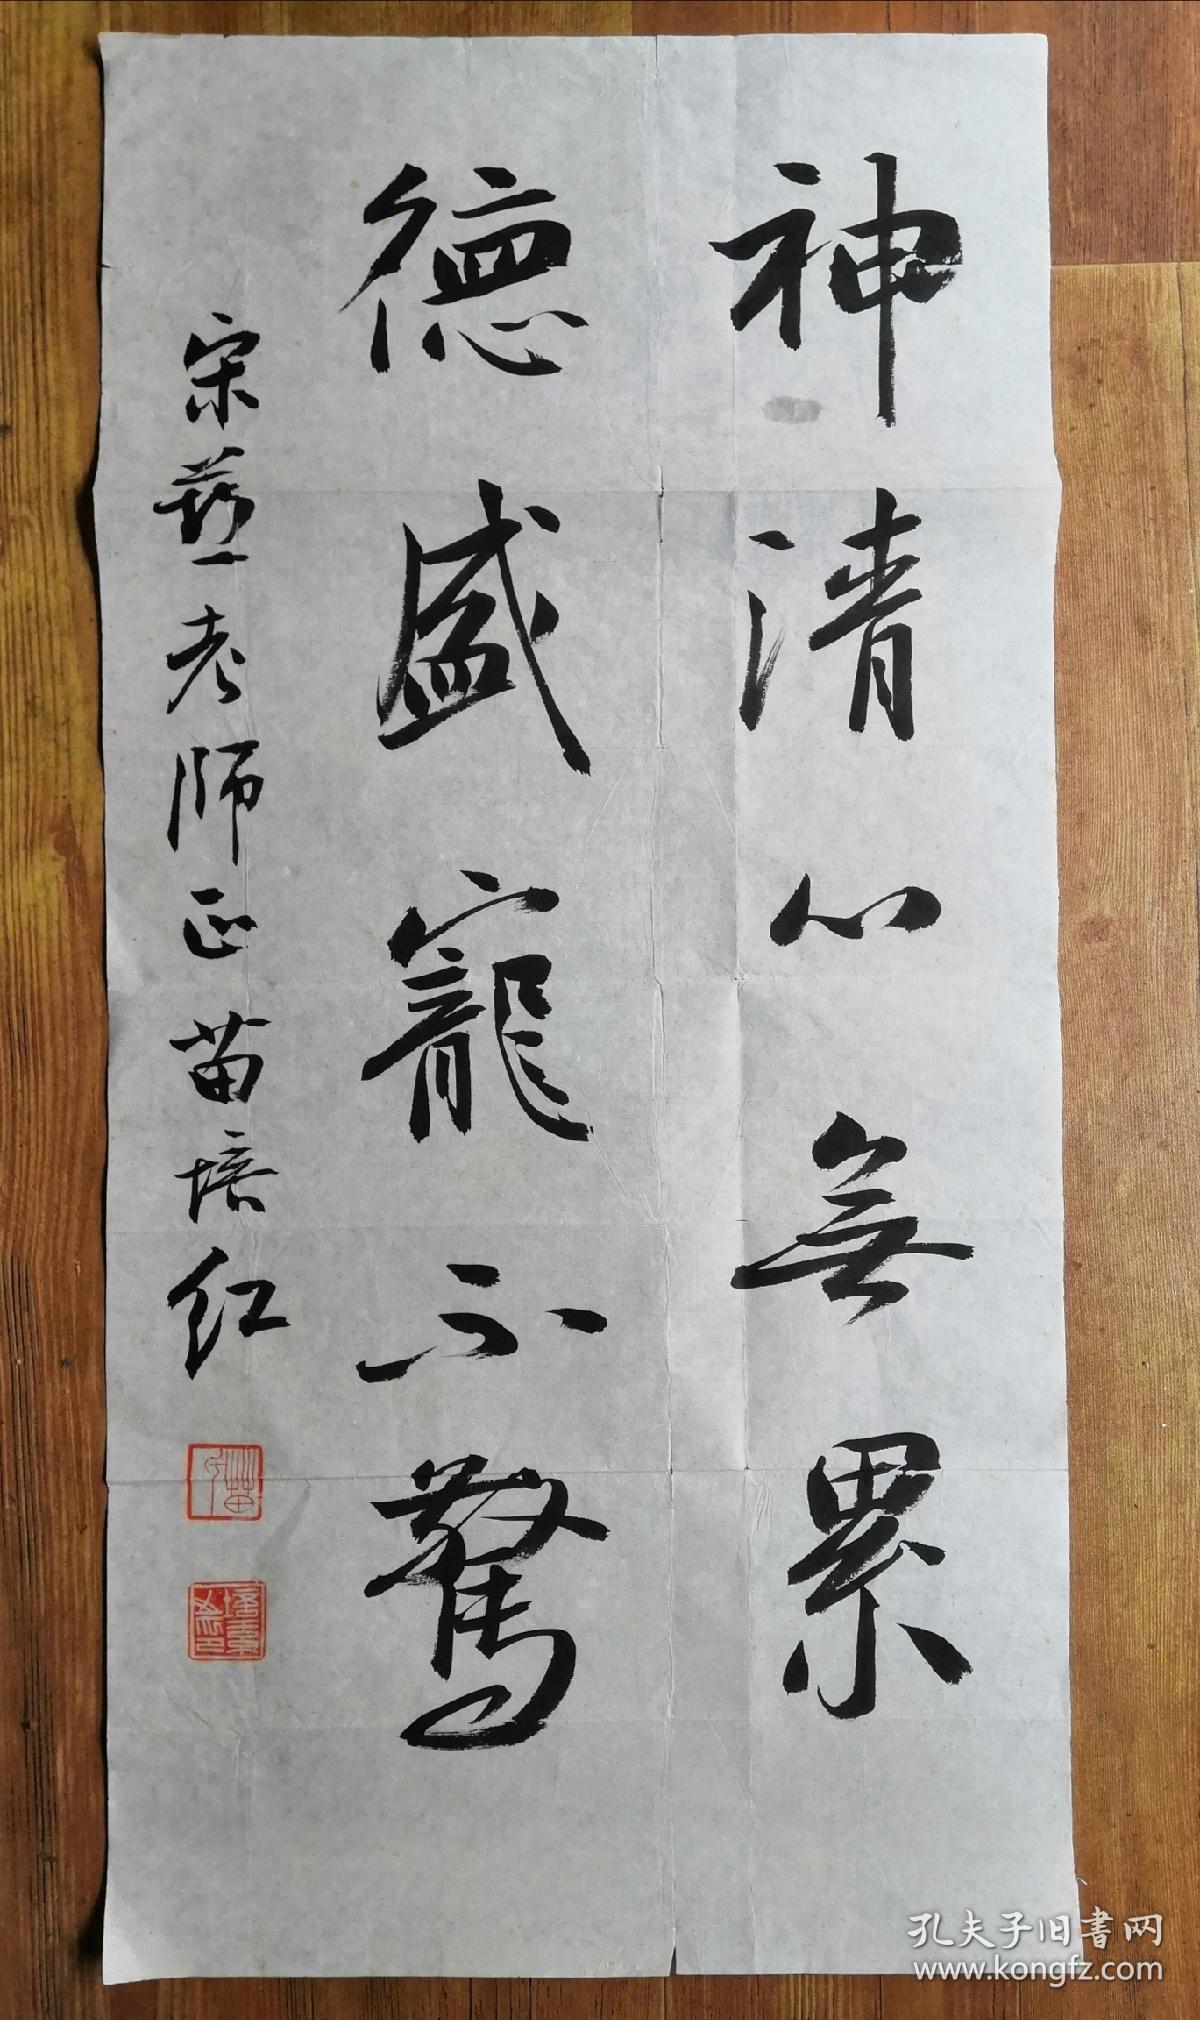 神清心無累
德盛寵不驚
宋慈老师正苗培红
孔夫子旧書网
www.kongfz.com